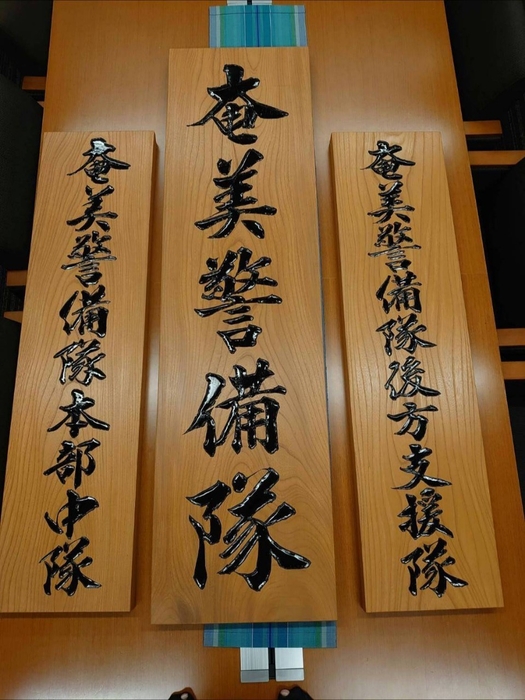 奄美警備隊後方支援隊
奄美警備隊
奄美警備隊本部中隊